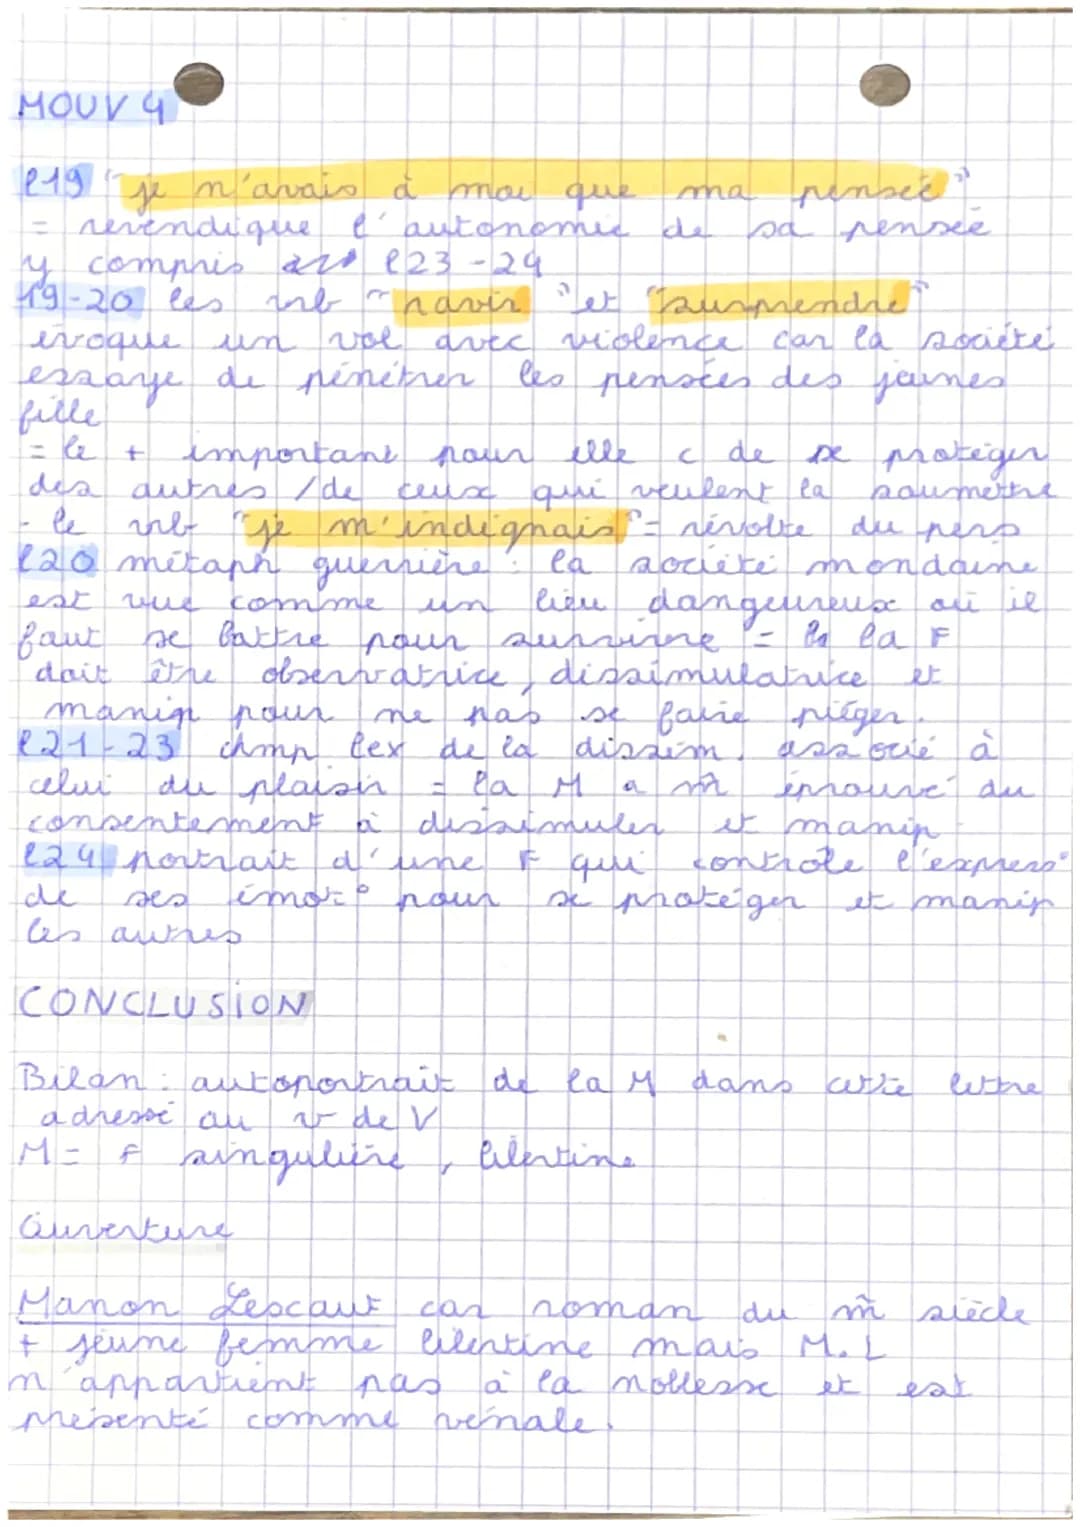 MOUV 4
l19 "je n'avais à moi que ma pensée"
= revendique l'autonomie de sa pensée
y compris l23-24
19-20 les vrb "ravir" et "surprendre"
évoque un vol avec violence car la société
essaye de pénétrer les pensées des jeunes
fille
= le + important pour elle c de se protéger
des autres / de ceux qui veulent la soumettre
- le vrb "je m'indignais" = révolte du pers
l20 métaph guerrière : la société mondaine
est vue comme un lieu dangeureux où il
faut se battre pour survivre = la F
doit être observatrice, dissimulatrice et
manip pour ne pas se faire piéger.
l21-23 chmp lex de la dissim. associé à
celui du plaisir = la M a m̂ éprouvé du
consentement à dissimuler et manip
l24 portrait d'une F qui contrôle l'express°
de ses émot° pour se protéger et manip
les autres
CONCLUSION
Bilan : autoportrait de la M dans cette lettre
adressé au v de V
M = F singulière, libertine
Ouverture
Manon Lescaut car roman du m̂ siècle
+ jeune femme libertine mais M.L
n'appartient pas à la noblesse et est
présenté comme vénale.